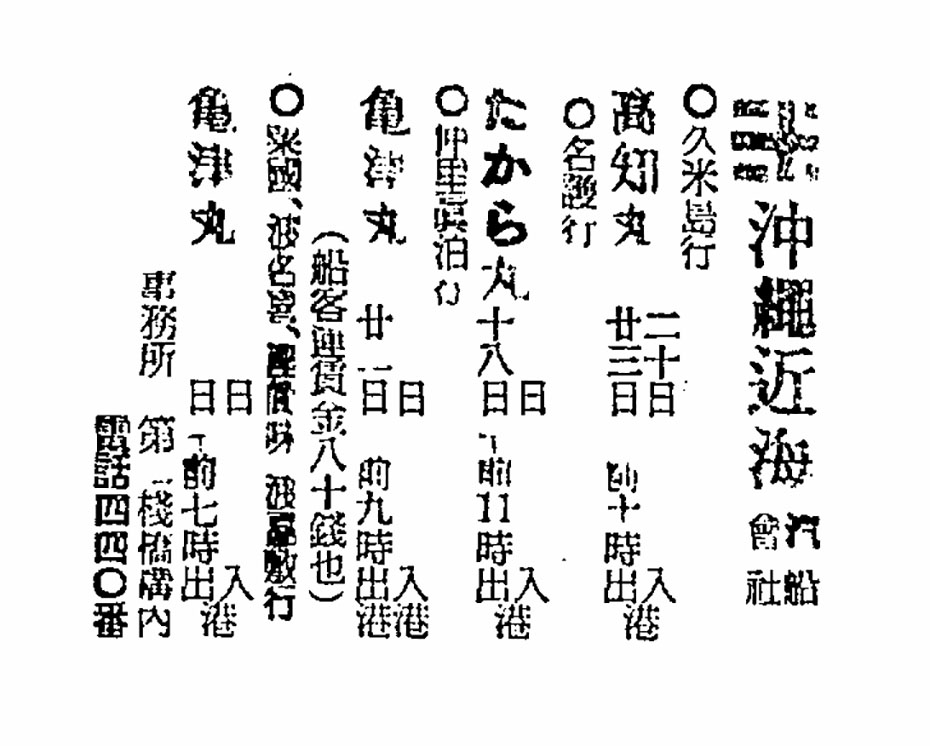 株式 沖繩近海 汽船會社
〇久米島行
高知丸 二十日入港
廿三日 前十時出港
〇名護行
たから丸 日入港
十八日 午前11時出港
〇仲里真泊行
亀津丸 日入港
廿一日 前九時出港
(船客運賃金八十錢也)
〇粟國、波名喜、渡嘉敷行
亀津丸 日入港
日 午前七時出港
事務所 第一棧橋構内
電話四四〇番